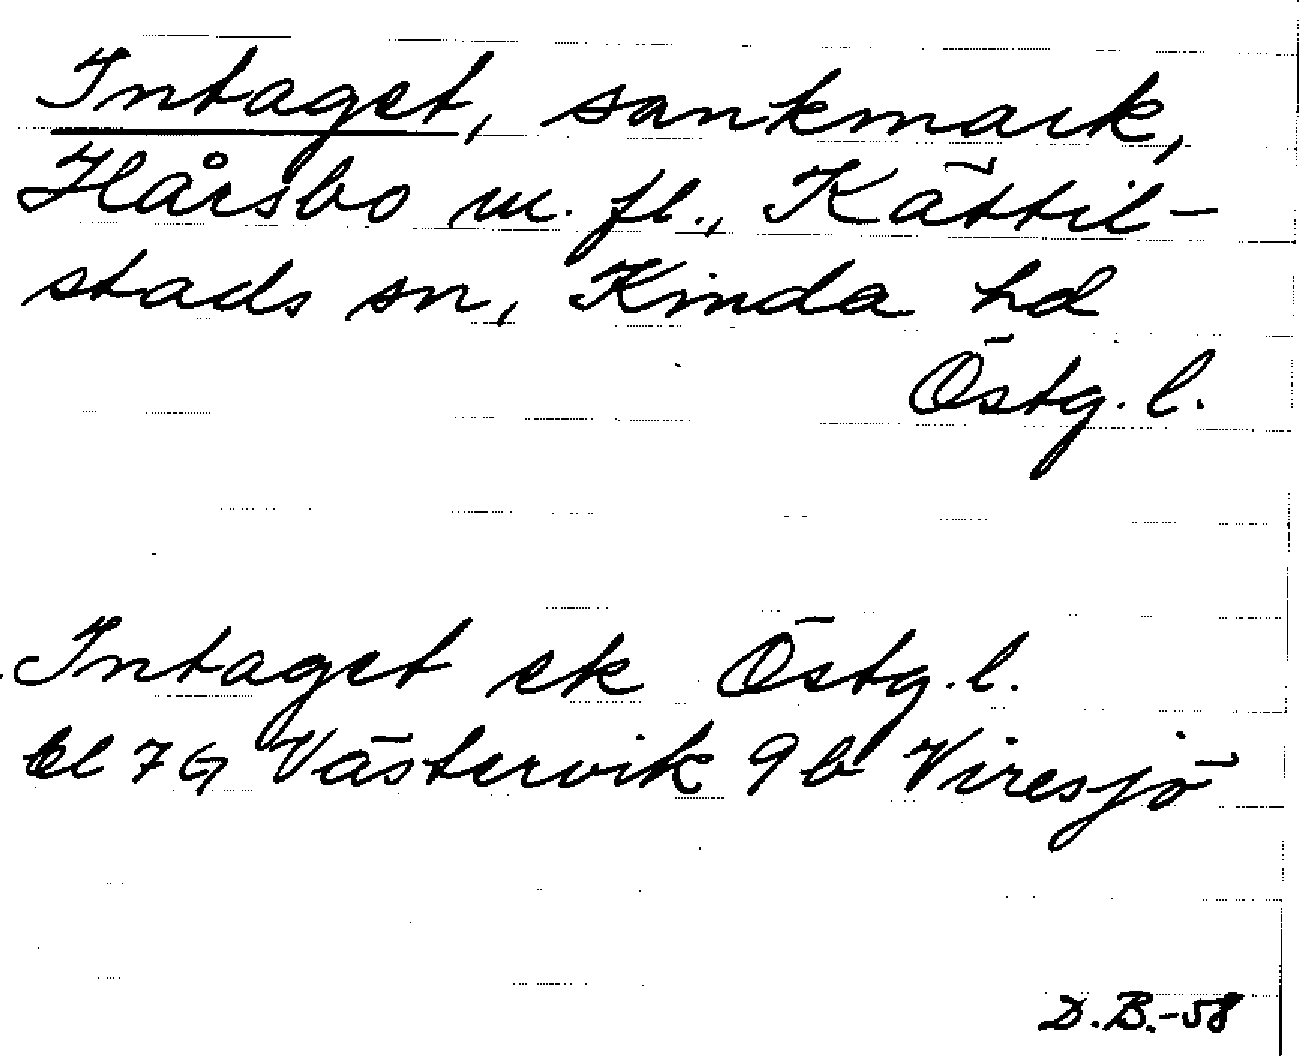 Intaget, sankmark,
Hårsbo m. fl., Kättil-
stads sn, Kinda hd
Östg. l.
Intaget ek Östg. l.
bl 7G Västervik 9b Viresjö
D.B.-58